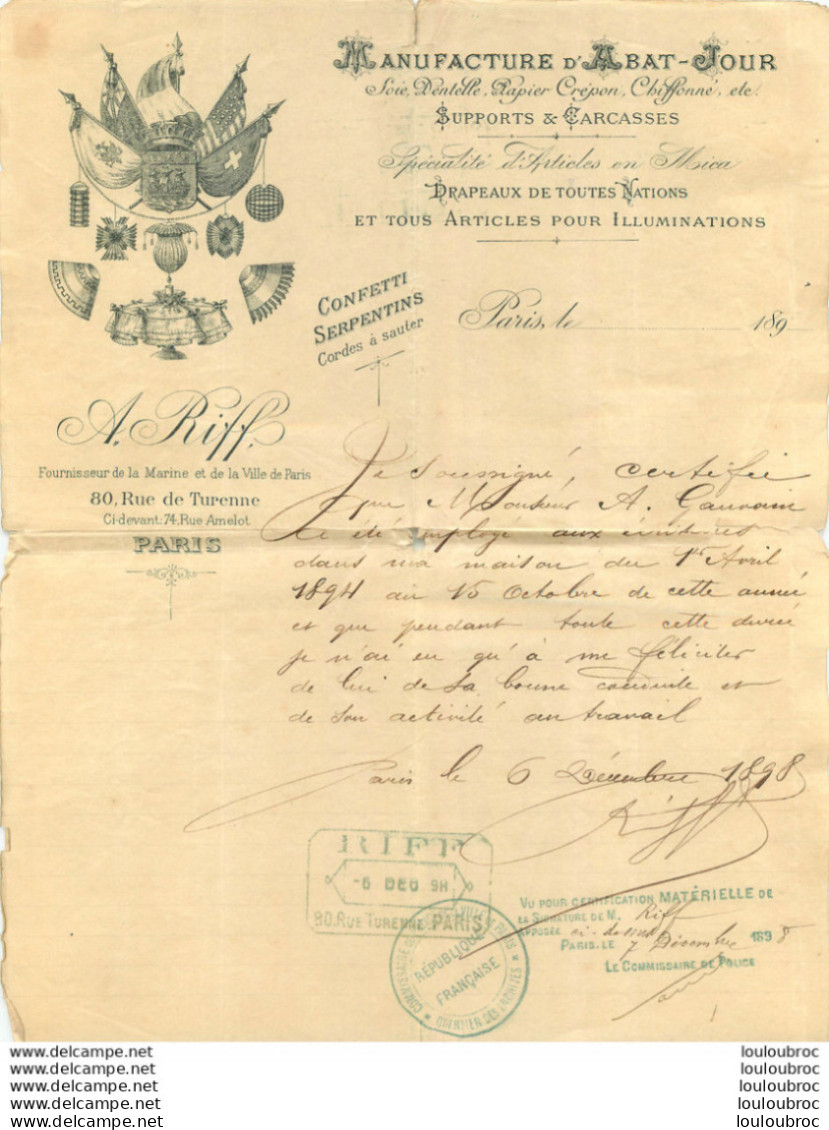 Manufacture d'Abat-Jour
Soie, Dentelle, Papier Crépon, Chiffonné, etc.
Supports & Carcasses
Spécialité d'Articles en Mica
Drapeaux de toutes Nations
et tous Articles pour Illuminations
Confetti
Serpentins
Cordes à sauter
Paris, le 189
A. Riff.
Fournisseur de la Marine et de la Ville de Paris
80, Rue de Turenne
Ci-devant: 74, Rue Amelot
PARIS
Je soussigné, certifie
que Monsieur A. Gauvain
a été employé aux
dans ma maison du 1er Avril
1894 au 15 Octobre de cette année
et que pendant toute cette durée
je n'ai eu qu'à me féliciter
de lui de sa bonne conduite et
de son activité au travail
Paris le 6 Décembre 1898
Riff
RIFF
-6 DEC 98
80, Rue Turenne, PARIS
RÉPUBLIQUE
FRANÇAISE
Vu pour certification MATÉRIELLE de
la Signature de M. Riff
apposée ci-dessus
Paris, le 7 Décembre 1898
Le Commissaire de Police
www.delcampe.net
www.delcampe.net
www.delcampe.net
www.delcampe.net
www.delcampe.net
louloubroc
louloubroc
louloubroc
louloubroc
louloubroc